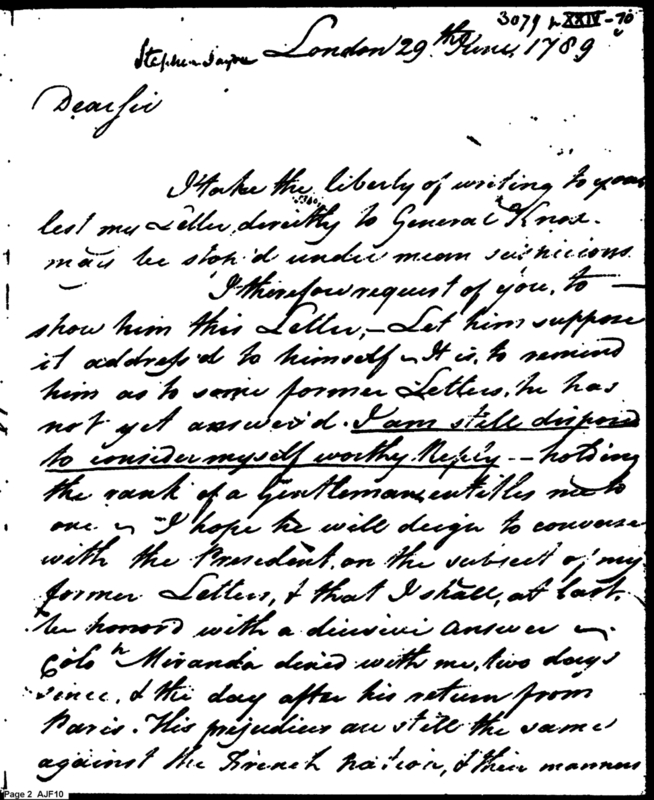 3079 XXIV-70
Stephen Sayre London 29th June, 1789
Dear Sir
I take the liberty of writing to you,
lest my Letter, directly to General Knox
may be stop'd under mean suspicions.
I therefore request of you, to —
show him this Letter, – Let him suppose
it address'd to himself – It is, to remind
him as to some former Letters, he has
not yet answer'd. I am still disposed
to consider myself worthy Reply – holding
the rank of a Gentleman, entitles me to
one – I hope he will deign to converse
with the President, on the subject of my
former Letters, & that I shall, at last,
be honor'd with a decisive answer –
Colo Miranda dined with me, two days
since, & the day after his return from
Paris. His prejudices are still the same
against the French nation, & their manners
Page 2 AJF10